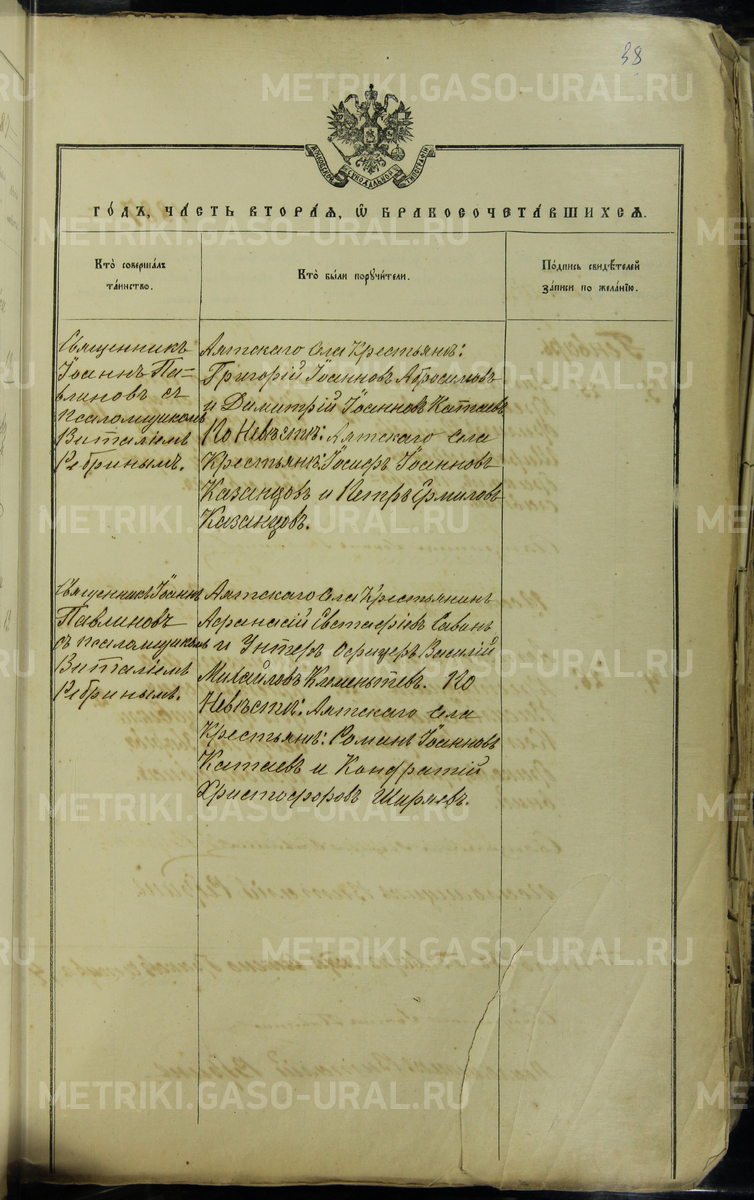 38
МОСКОВСКОЙ СѴНОДАЛЬНОЙ ТИПОГРАФІИ
ГОДЪ, ЧАСТЬ ВТОРАЯ, Ѡ БРАКОСОЧЕТАВШИХСЯ.
Кто совершалъ
таинство.
Кто были поручители.
Подпись свидѣтелей
записи по желанію.
Священникъ
Іоаннъ Па-
влиновъ съ
псаломщикомъ
Виталіемъ
Ребринымъ.
Аятскаго Села Крестьяне:
Григорій Іоанновъ Абросимовъ
и Димитрій Іоанновъ Катаевъ
По Невѣстѣ: Аятскаго Села
Крестьяне: Іосифъ Іоанновъ
Казанцовъ и Петръ Ермиловъ
Казанцовъ.
Священникъ Іоаннъ
Павлиновъ
съ псаломщикомъ
Виталіемъ
Ребринымъ.
Аятскаго Села Крестьянинъ
Афанасій Евстафіевъ Савинъ
и Унтеръ Офицеръ Василій
Михайловъ Клементьевъ. По
Невѣстѣ: Аятскаго Села
Крестьяне: Романъ Іоанновъ
Катаевъ и Кондратій
Христофоровъ Ширяевъ.
METRIKI.GASO-URAL.RU